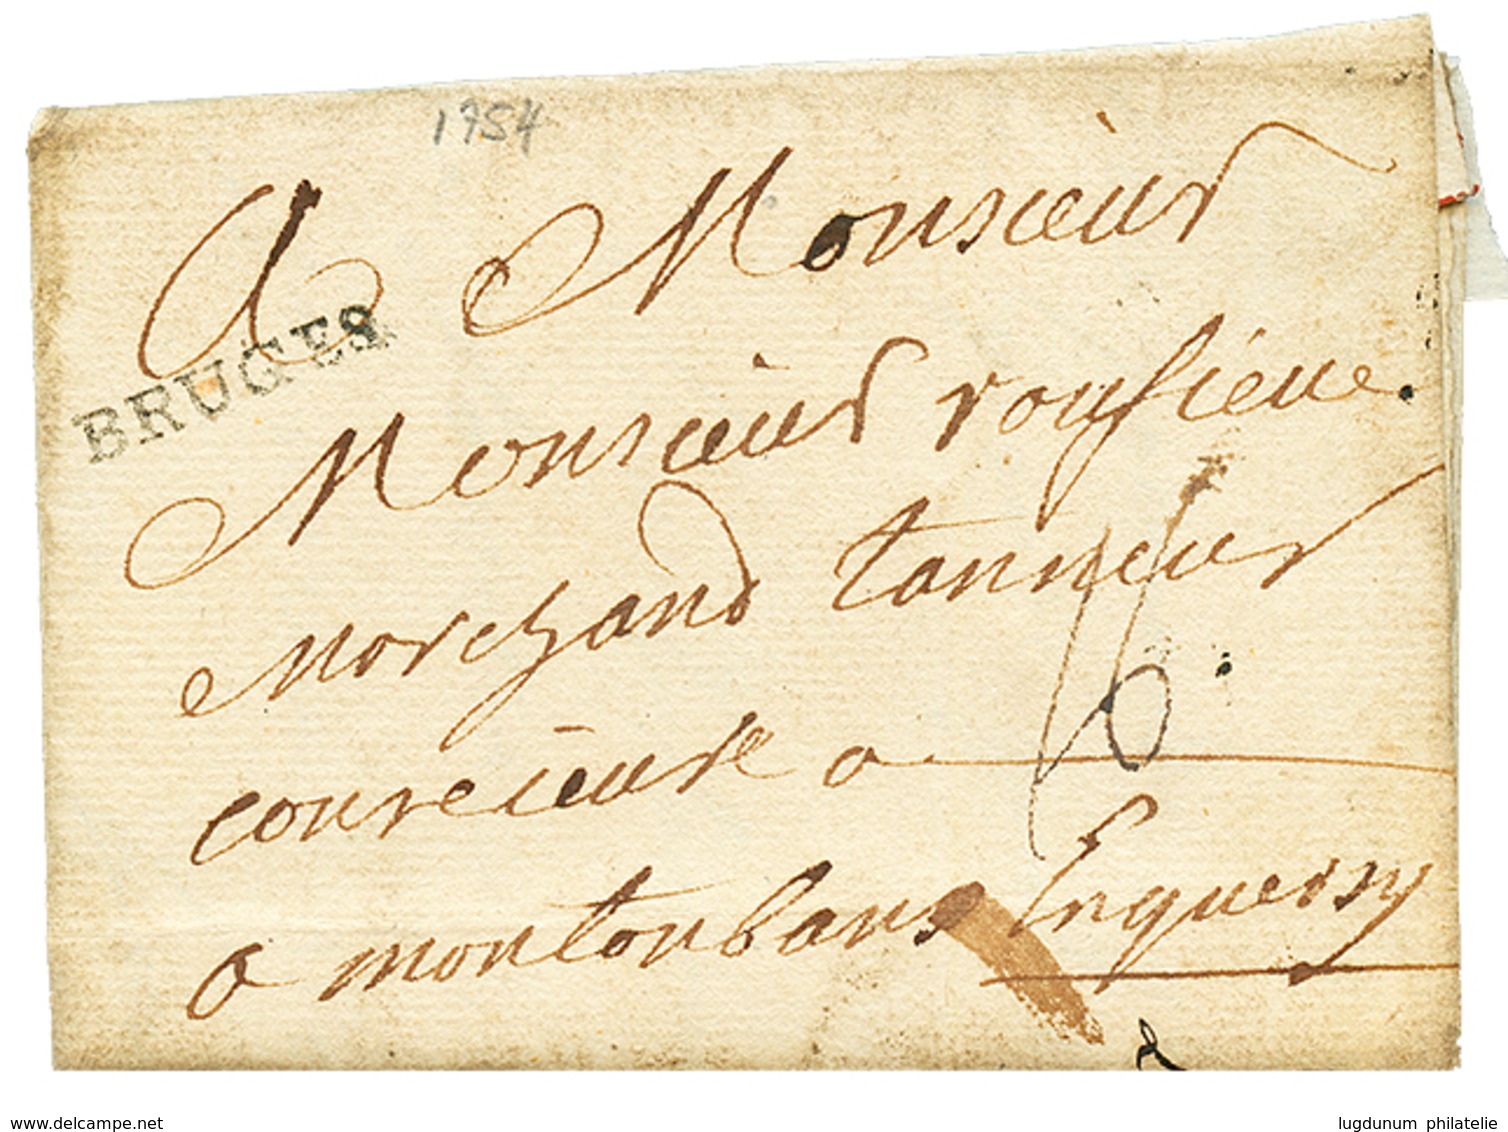 1754
A Monsieur
BRUGES
Monsieur rousieue.
Marchand tanneur
courcieuse a
16
a montoubans Enquersy
www.delcampe.net
lugdunum philatelie